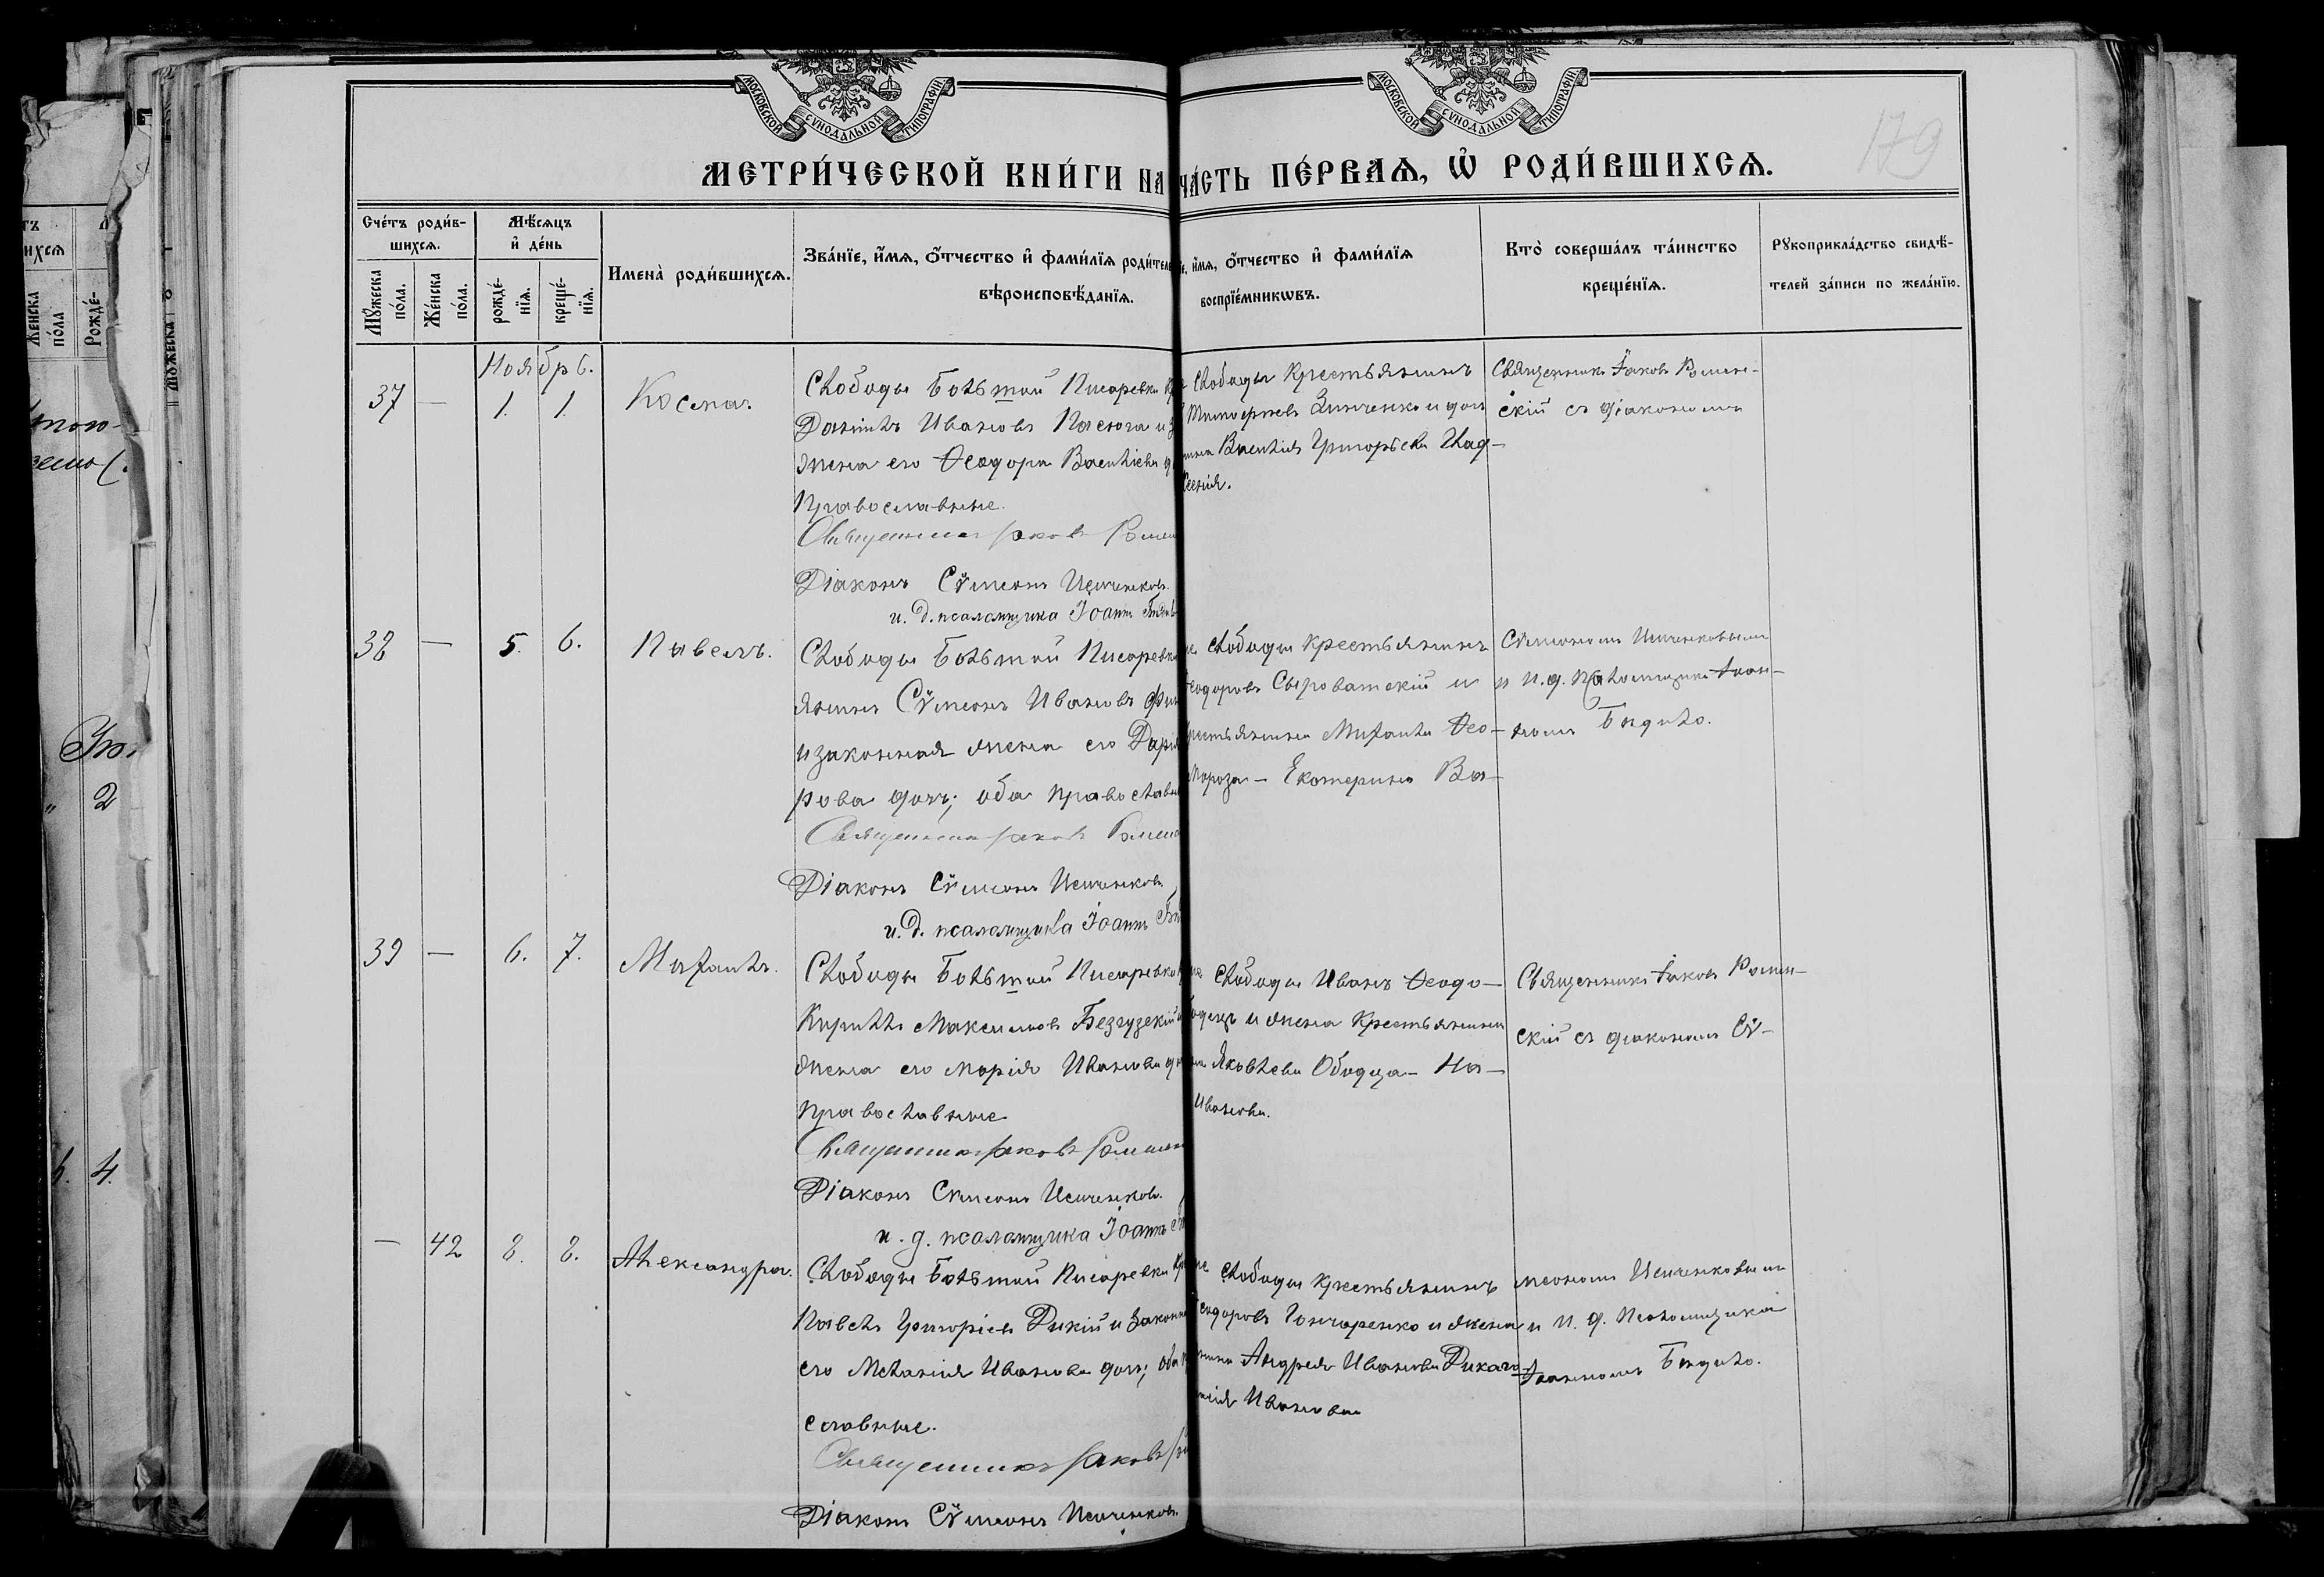 МОСКОВСКОЙ СѴНОДАЛЬНОЙ ТИПОГРАФІИ
МОСКОВСКОЙ СѴНОДАЛЬНОЙ ТИПОГРАФІИ
179
МЕТРИ́ЧЕСКОЙ КНИ́ГИ НА ЧА́СТЬ ПЕ́РВАѦ, Ѡ҆ РОДИ́ВШИХСѦ.
Сче́тъ роди́в-
шихсѧ.
Мꙋ́жеска по́ла.
Же́нска по́ла.
Мѣ́сѧцъ
и҆ де́нь
рожде́-
нїѧ.
креще́-
нїѧ.
Имена̀ роди́вшихсѧ.
Зва́нїе, и҆́мѧ, ѻ҆́тчество и҆ фами́лїѧ родите
вѣроисповѣ́данїѧ.
и҆́мѧ, ѻ҆́тчество и҆ фами́лїѧ
воспрїе́мникѡвъ.
Кто̀ соверша́лъ та́инство
креще́нїѧ.
Рꙋкоприкла́дство свидѣ́-
телей за́писи по жела́нїю.
Ноябрь.
37 — 1. 1. Косма.
Слободы Большой Писаревки
Даніилъ Ивановъ Пасюга и
жена его Ѳеодора Василіева
Православные.
Священникъ Іаковъ
Діаконъ Сѵмеонъ Исиченковъ.
и. д. псаломщика Іоаннъ
Слободы Крестьянинъ
Тимоѳеевъ Зинченко и
Василія Григорьева Глад-
Священникъ Іаковъ Ромен-
скій съ діакономъ
38 — 5. 6. Павелъ.
Слободы Большой Писаревки
янинъ Сѵмеонъ Ивановъ
и законная жена его Дарія
рова дочь; оба православн
Священникъ Іаковъ
Діаконъ Сѵмеонъ Исиченковъ
и. д. псаломщика Іоаннъ
Слободы Крестьянинъ
еодоровъ Сыроватскій и
рестьянина Михаила Ѳео-
Мороза — Екатерина Ва-
Сѵмеономъ Исиченковымъ
и и. д. Псаломщика Іоан-
номъ Бидило.
39 — 6. 7. Михаилъ.
Слободы Большой Писаревки
Кириллъ Максимовъ Безгузскій
жена его Марія Иванова
православные
Священникъ Іаковъ
Діаконъ Сѵмеонъ Исиченковъ.
и. д. псаломщика Іоаннъ
Слободы Иванъ Ѳеодо-
и жена Крестьянина
Яковлева Ободца — На-
Иванова.
Священникъ Іаковъ Ромен-
скій съ діакономъ Сѵ-
— 42 8. 8. Александра.
Слободы Большой Писаревки
Павелъ Григоріевъ Дикій и законн
его Меланія Иванова дочь; оба
славные.
Священникъ Іаковъ
Діаконъ Сѵмеонъ Исиченковъ
Слободы Крестьянинъ
еодоровъ Гончаренко и жена
Андрея Иванова Дикаго
Иванова
меономъ Исиченковымъ
и и. д. Псаломщика
Іоанномъ Бидило.